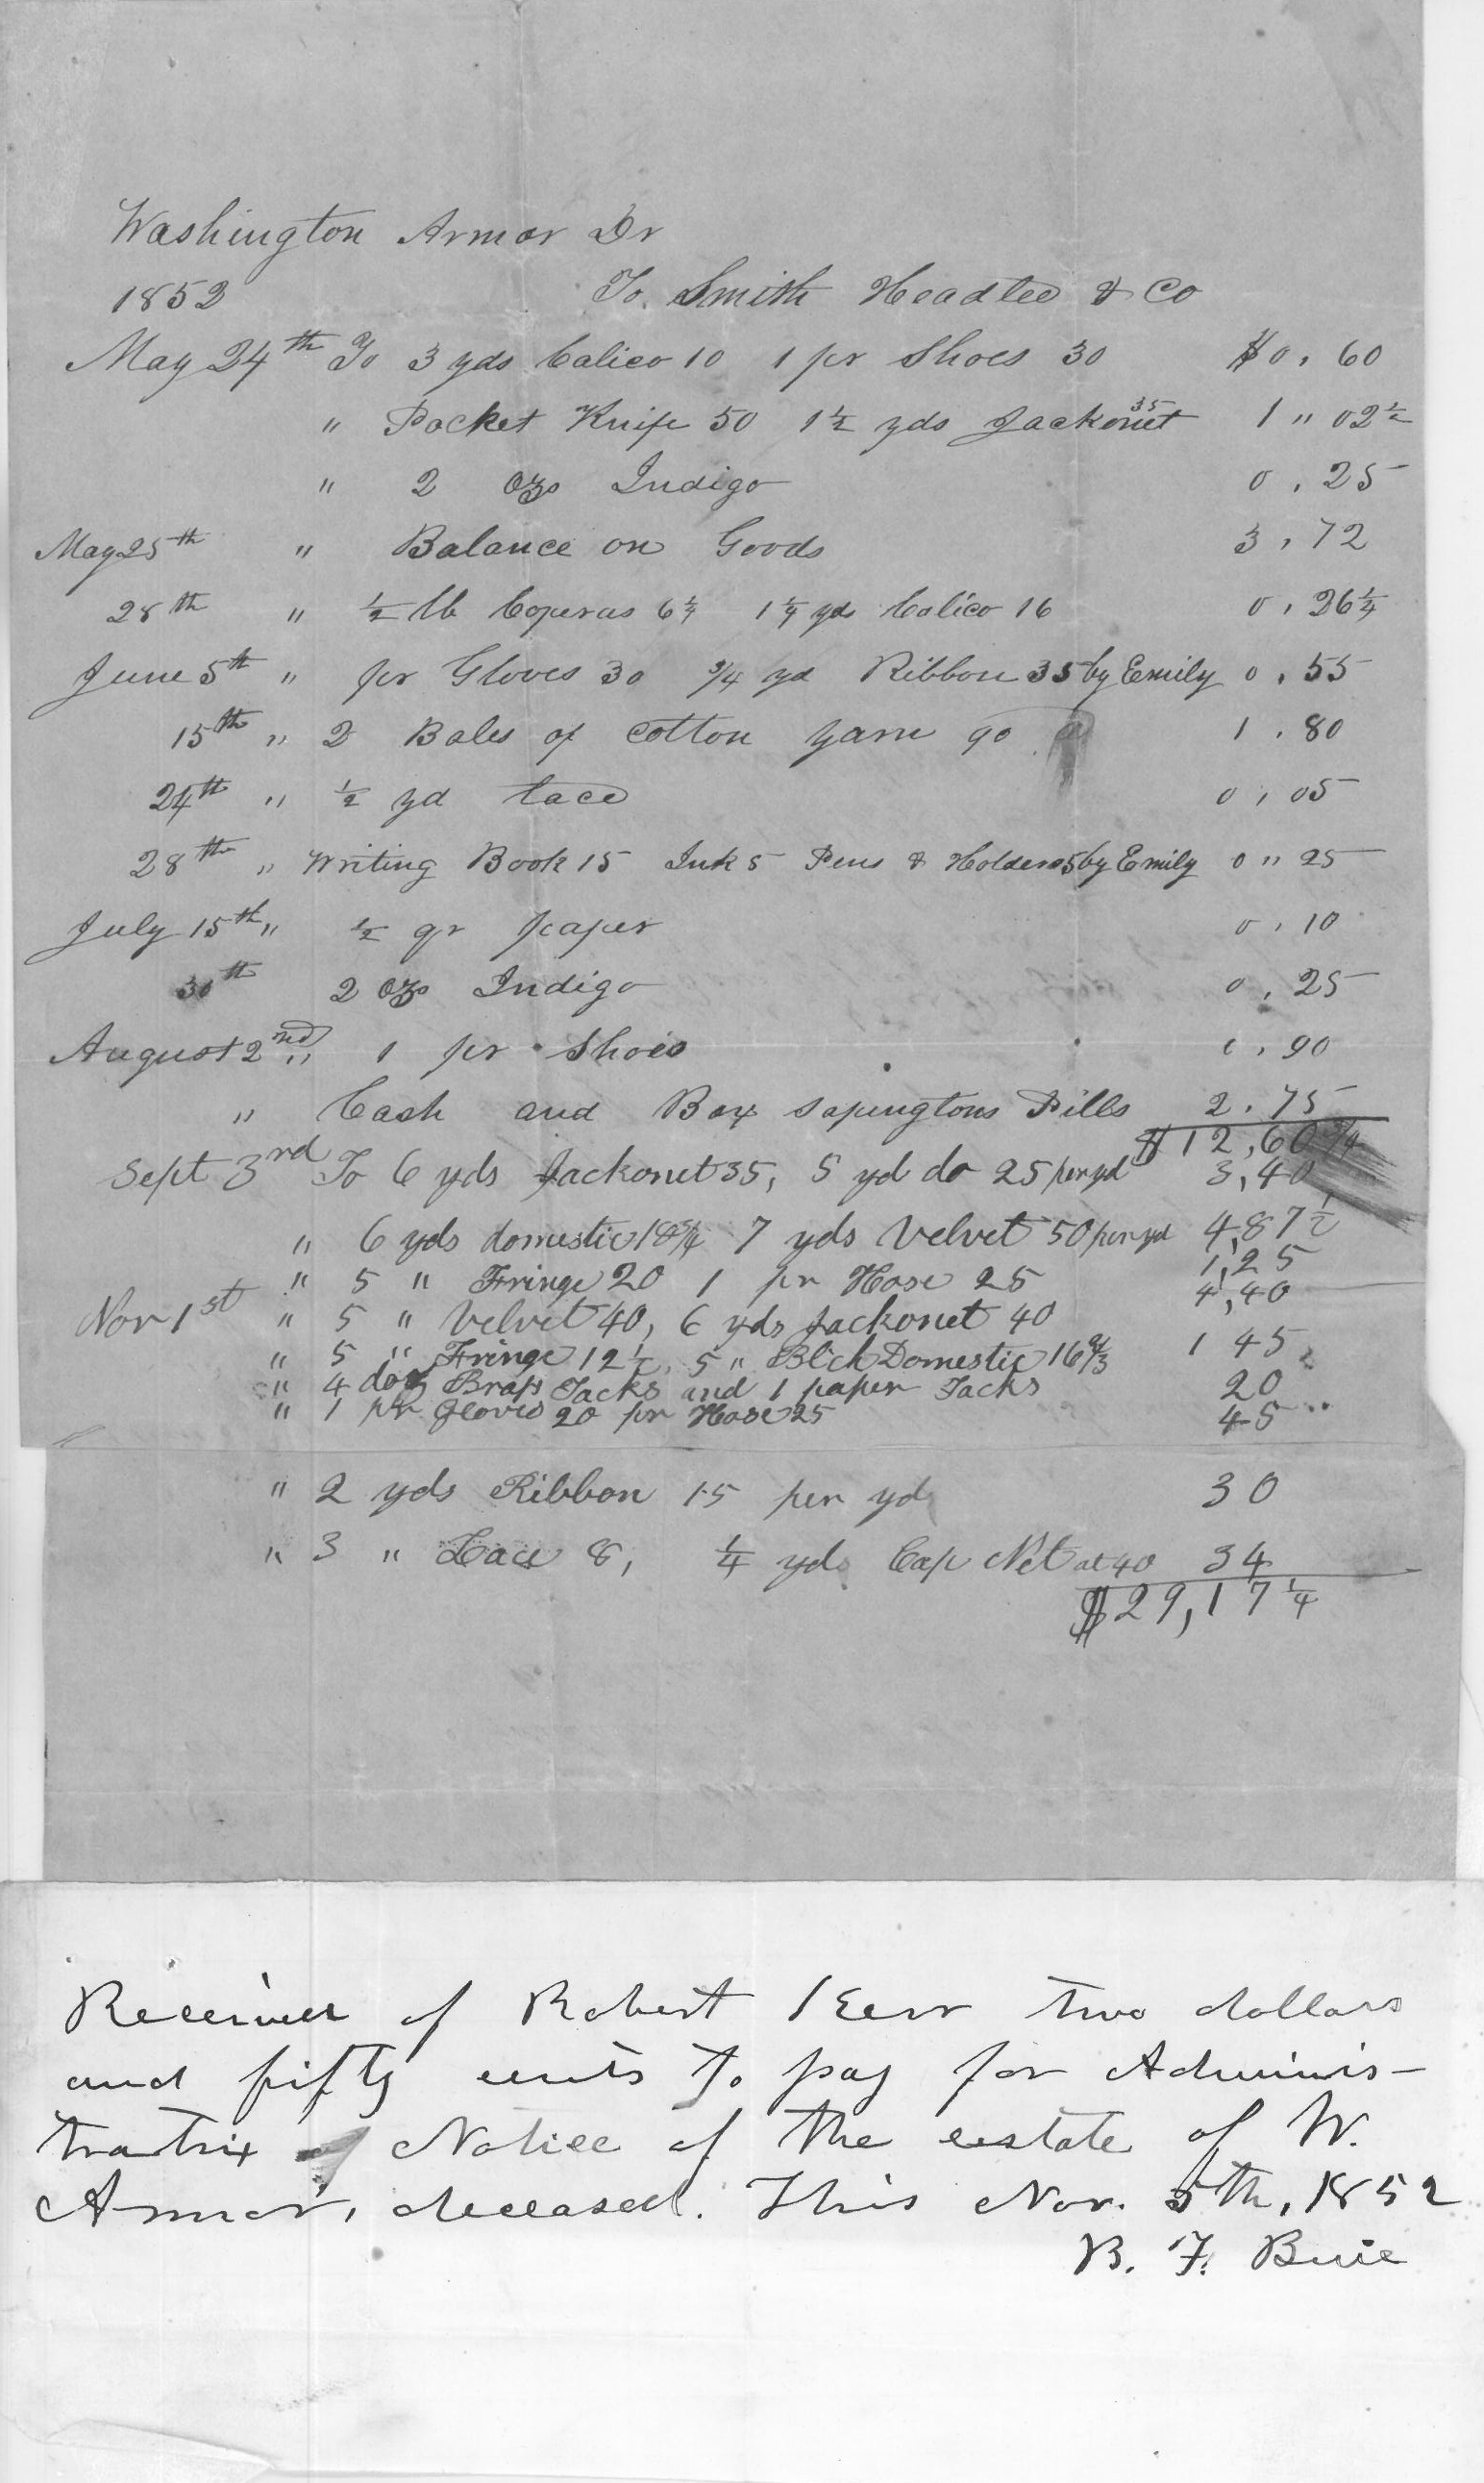 Washington Armor Dr
1852 To Smith Headlee & Co
May 24th To 3 yds Calico 10 1 pr Shoes 30 $0,60
" Pocket Knife 50 1½ yds Jackonet 35 1 " 02½
" 2 ozs Indigo 0,25
May 25th " Balance on Goods 3,72
28th " ½ lb Coperas 6¼ 1¼ yds Calico 16 0,26¼
June 5th " pr Gloves 30 ¾ yd Ribbon 35 by Emily 0,55
15th " 2 Bales of cotton yarn 90 1,80
24th " ½ yd lace 0,05
28th " Writing Book 15 Ink 5 Pens & Holders 5 by Emily 0 " 25
July 15th " ½ qr paper 0,10
30th 2 ozs Indigo 0,25
August 2nd " 1 pr Shoes 0,90
" Cash and Box Sapingtons Pills 2,75
$12,60¾
Sept 3rd To 6 yds Jackonet 35, 5 yd do 25 per yd 3,40
" 6 yds domestic 18¾ 7 yds Velvet 50 per yd 4,87½
" 5 " Fringe 20 1 pr Hose 25 1,25
Nov 1st " 5 " Velvet 40, 6 yds Jackonet 40 4,40
" 5 " Fringe 12½, 5 " Blch Domestic 16⅔ 1 45
" 4 doz Brass Tacks and 1 paper Tacks 20
" 1 pr Gloves 20 pr Hose 25 45
" 2 yds Ribbon 15 per yd 30
" 3 " Lace 8, ¼ yds Cap Net at 40 34
$29,17¼
Received of Robert Kerr two dollars
and fifty cents to pay for Adminis-
tratrix Notice of the estate of W.
Armor, deceased. This Nov. 5th, 1852
B. F. Buie